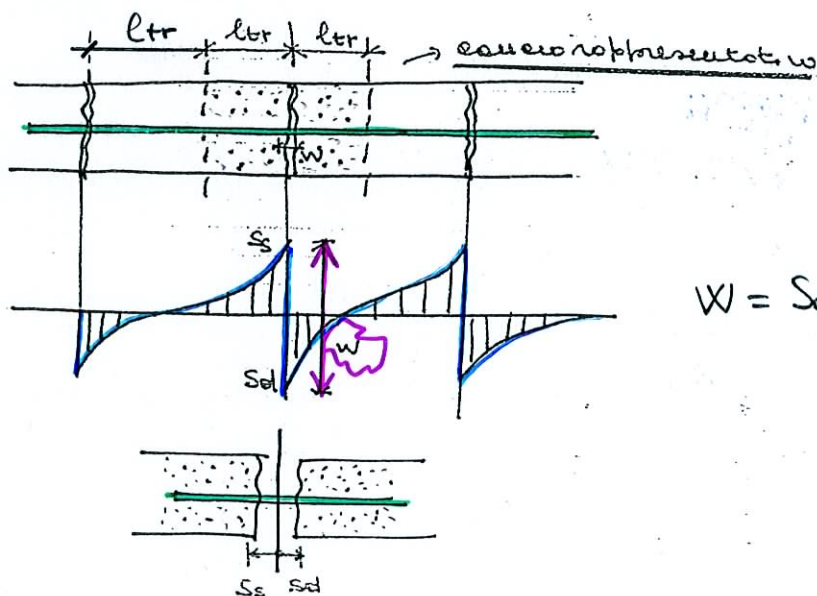 ltr ltr ltr
→ concio rappresentativo
w
Ss
W = Sd
w
Sd
Ss Sd